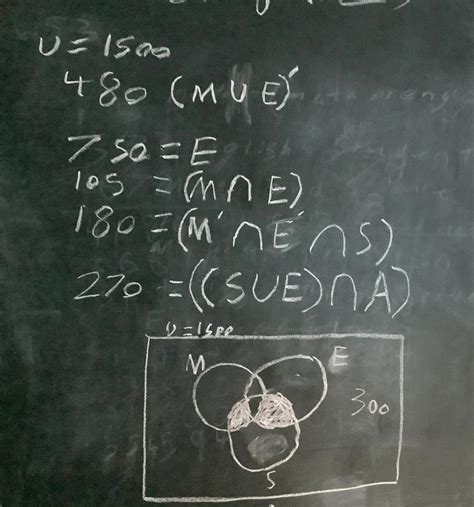 U = 1500
480 (M ∪ E)'
750 = E
105 = (M ∩ E)
180 = (M' ∩ E' ∩ S)
270 = ((S ∪ E) ∩ A)
U = 1500
M
E
300
S